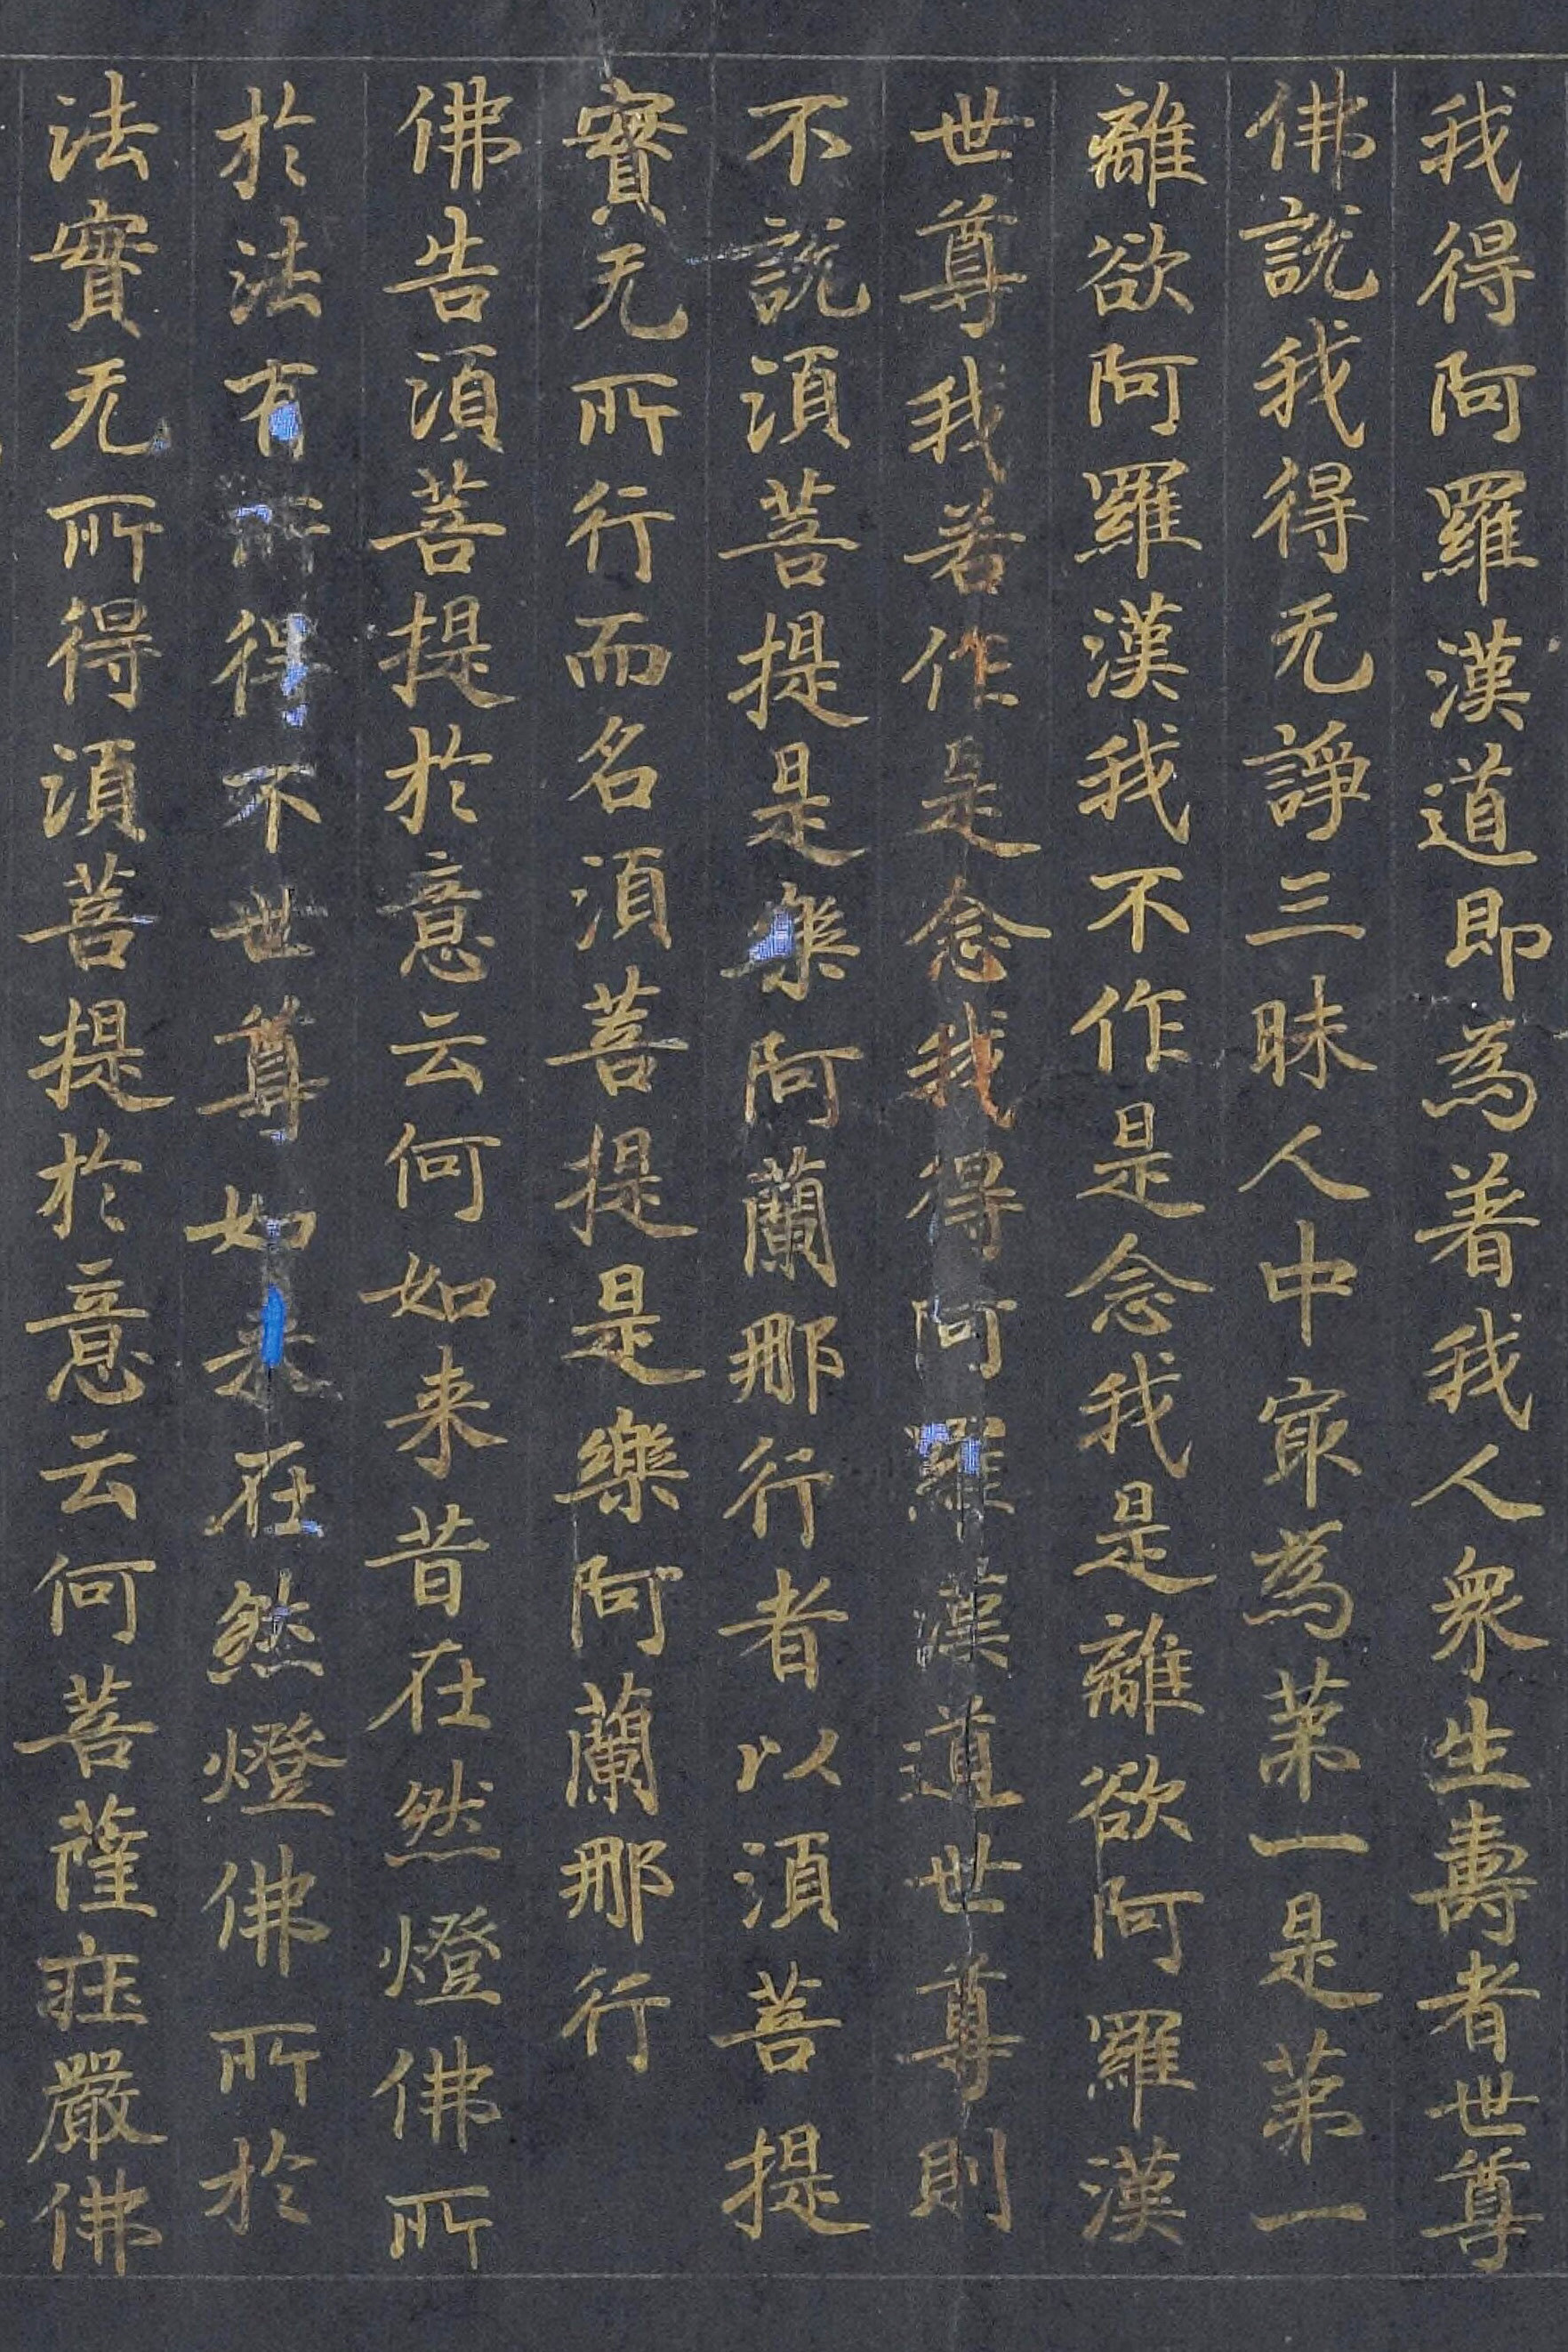 我得阿羅漢道即為著我人衆生壽者世尊
佛說我得无諍三昧人中㝡為苐一是苐一
離欲阿羅漢我不作是念我是離欲阿羅漢
世尊我若作是念我得阿羅漢道世尊則
不說須菩提是樂阿蘭那行者以須菩提
實无所行而名須菩提是樂阿蘭那行
佛告須菩提於意云何如来昔在然燈佛所
於法有所得不世尊如来在然燈佛所於
法實无所得須菩提於意云何菩薩莊嚴佛